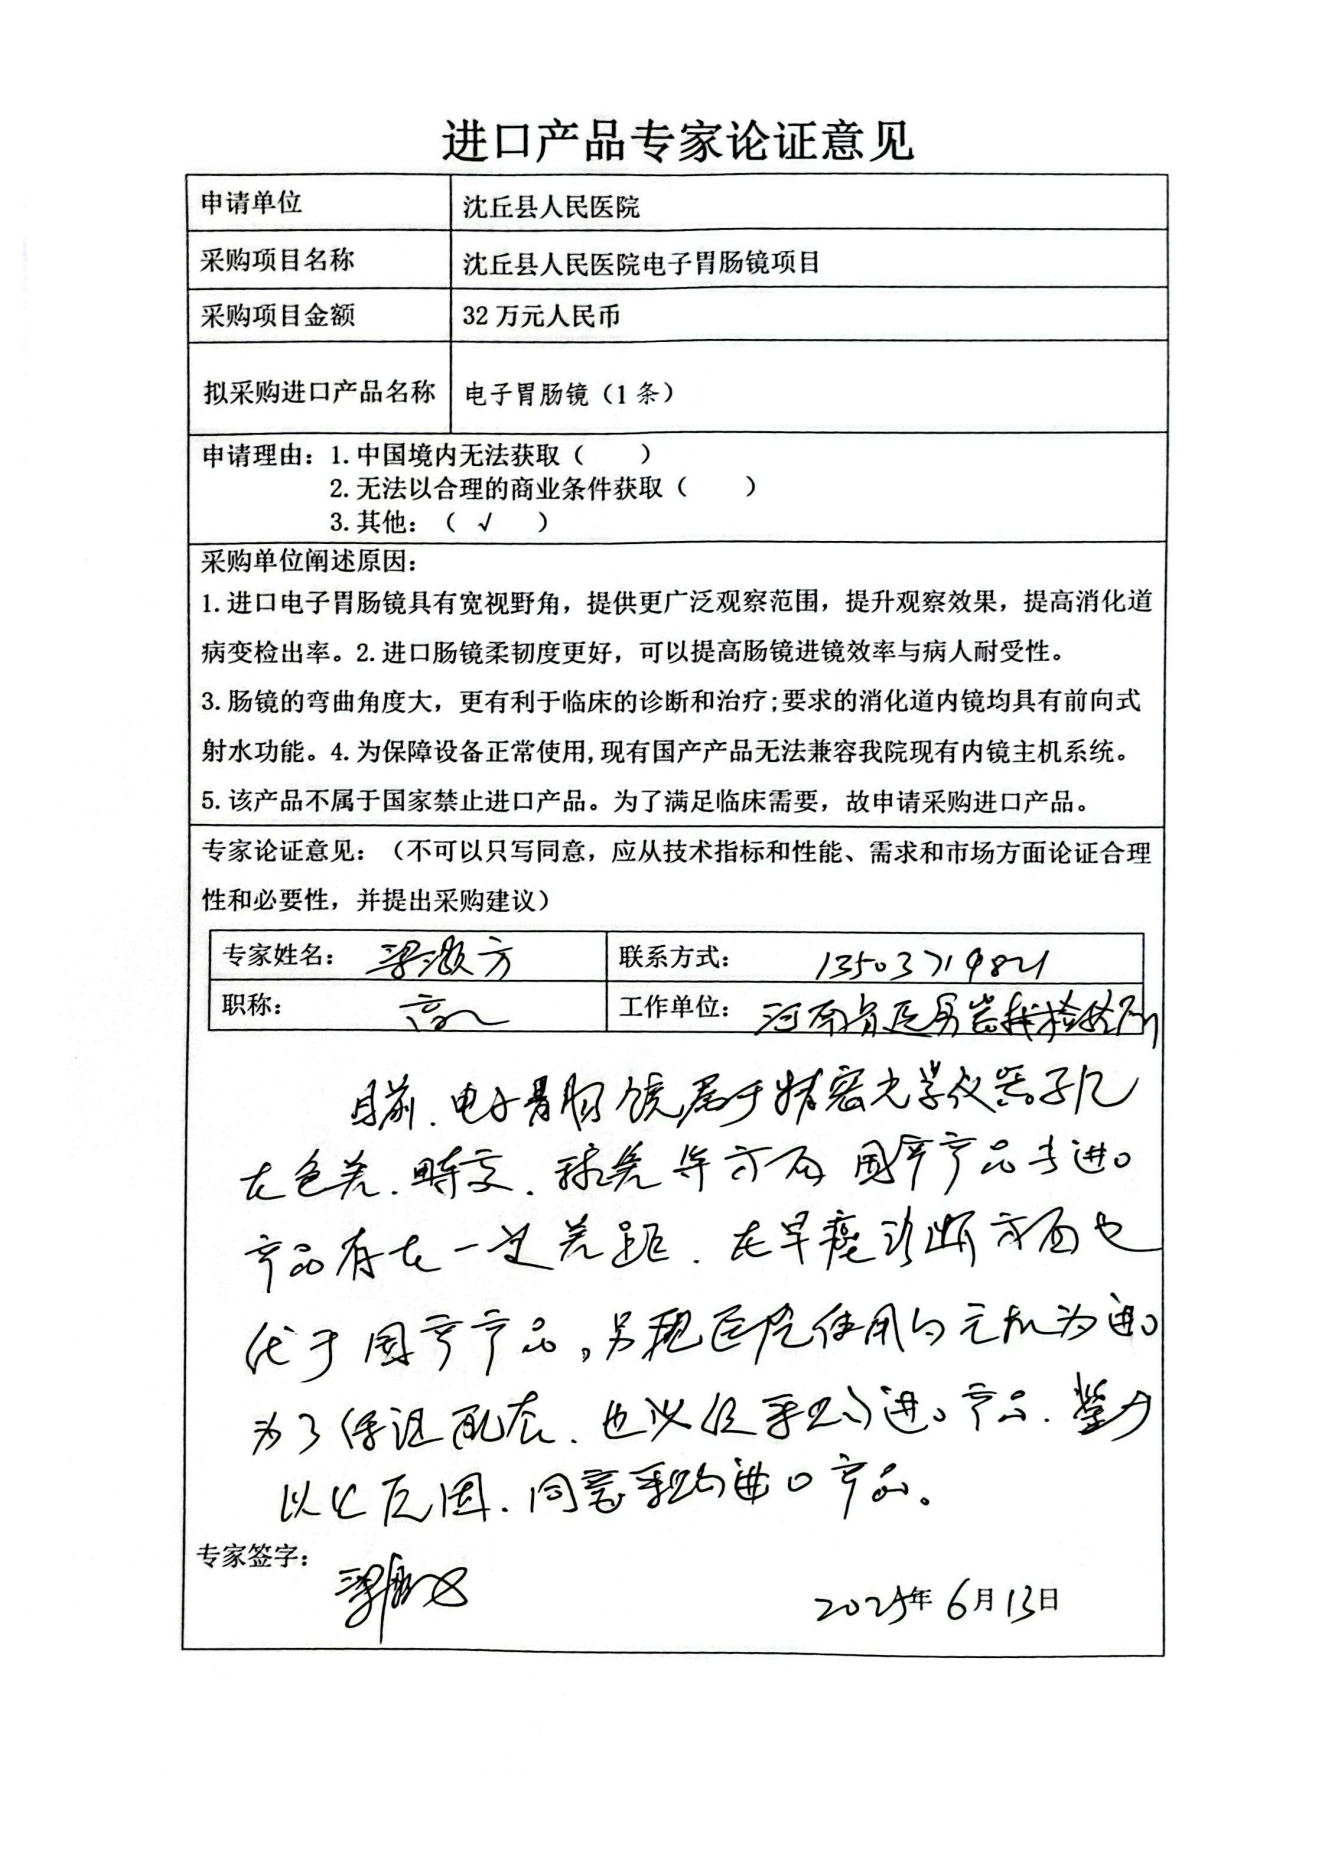 进口产品专家论证意见
申请单位 沈丘县人民医院
采购项目名称 沈丘县人民医院电子胃肠镜项目
采购项目金额 32 万元人民币
拟采购进口产品名称 电子胃肠镜（1 条）
申请理由：1.中国境内无法获取（ ）
2.无法以合理的商业条件获取（ ）
3.其他：（ √ ）
采购单位阐述原因：
1.进口电子胃肠镜具有宽视野角，提供更广泛观察范围，提升观察效果，提高消化道
病变检出率。2.进口肠镜柔韧度更好，可以提高肠镜进镜效率与病人耐受性。
3.肠镜的弯曲角度大，更有利于临床的诊断和治疗;要求的消化道内镜均具有前向式
射水功能。4.为保障设备正常使用,现有国产产品无法兼容我院现有内镜主机系统。
5.该产品不属于国家禁止进口产品。为了满足临床需要，故申请采购进口产品。
专家论证意见：（不可以只写同意，应从技术指标和性能、需求和市场方面论证合理
性和必要性，并提出采购建议）
专家姓名： 梁 方 联系方式： 13503719821
职称： 高工 工作单位： 河南省医疗器械检验所
目前.电子胃肠镜属于精密光学仪器
在色差.畸变.球差等方面 国产产品与进口
产品存在一定差距.在早癌诊断方面也
优于国产产品，另现医院使用的主机为进口
为了保证配套.也必须采购进口产品.鉴于
以上原因.同意采购进口产品。
专家签字：
2025年 6月13日